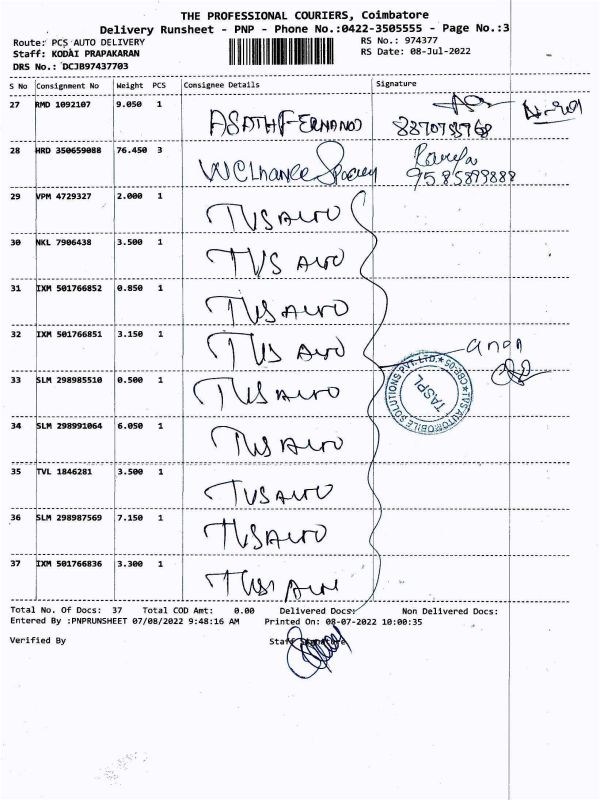 THE PROFESSIONAL COURIERS, Coimbatore
Delivery Runsheet - PNP - Phone No.:0422-3505555 - Page No.:3
Route: PCS AUTO DELIVERY RS No.: 974377
Staff: KODAI PRAPAKARAN RS Date: 08-Jul-2022
DRS No.: DCJB97437703
S No Consignment No Weight PCS Consignee Details Signature
27 RMD 1092107 9.050 1 ASATH FERNANDO
28 HRD 350659088 76.450 3 9585899888
29 VPM 4729327 2.000 1 TVS AUTO
30 NKL 7906438 3.500 1 TVS AUTO
31 IXM 501766852 0.850 1 TVS AUTO
32 IXM 501766851 3.150 1 TVS AUTO
33 SLM 298985510 0.500 1 TVS AUTO
34 SLM 298991064 6.050 1 TVS AUTO
35 TVL 1846281 3.500 1 TVS AUTO
36 SLM 298987569 7.150 1 TVS AUTO
37 IXM 501766836 3.300 1 TVS
TVS AUTOMOBILE SOLUTIONS PVT. LTD. ★ CBE-05 ★
TASPL
Total No. Of Docs: 37 Total COD Amt: 0.00 Delivered Docs: Non Delivered Docs:
Entered By :PNPRUNSHEET 07/08/2022 9:48:16 AM Printed On: 08-07-2022 10:00:35
Verified By Staff Signature